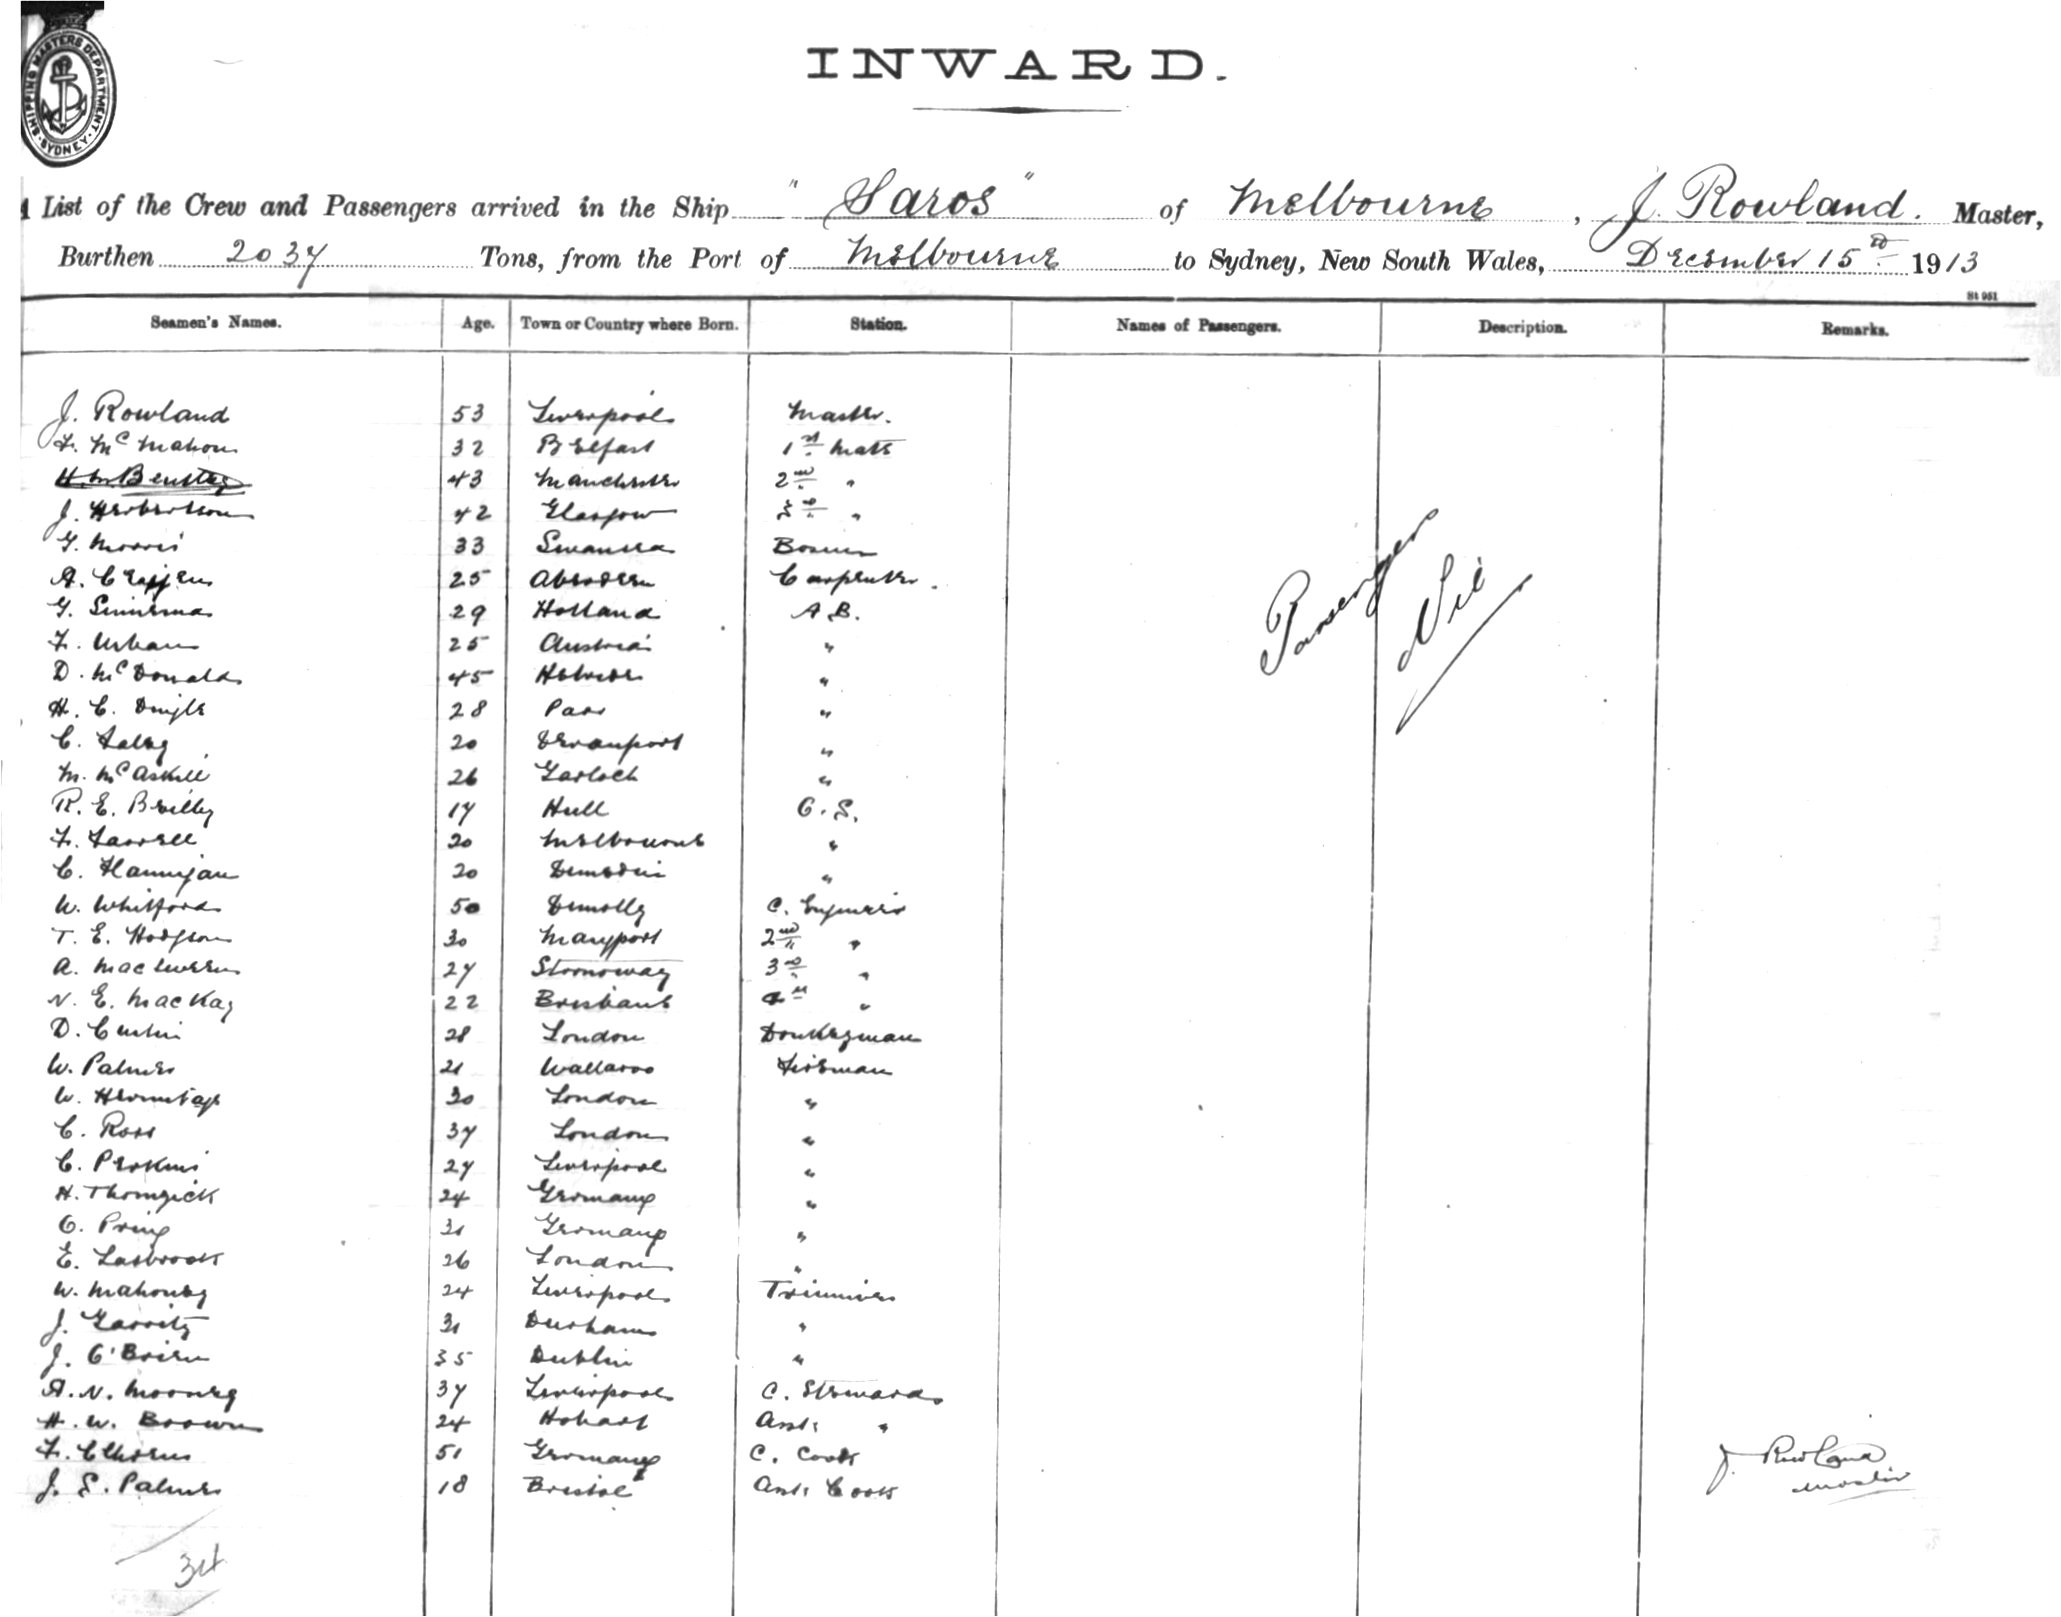 SHIPPING MASTERS DEPARTMENT
SYDNEY
INWARD.
List of the Crew and Passengers arrived in the Ship "Saros" of Melbourne, J. Rowland. Master,
Burthen 2037 Tons, from the Port of Melbourne to Sydney, New South Wales, December 15th 1913
St 951
Seamen's Names. Age. Town or Country where Born. Station. Names of Passengers. Description. Remarks.
J. Rowland 53 Liverpool Master.
F. McMahon 32 Belfast 1st Mate
H. Bentley 43 Manchester 2nd "
J. Herbertson 42 Glasgow 3rd "
G. Morris 33 Swansea Bosun
A. 25 Aberdeen Carpenter.
G. 29 Holland A.B.
F. Urban 25 Austria "
D. McDonald 45 "
H. C. Dingle 28 "
C. 20 Devonport "
M. McAskill 26 Garloch "
R. E. 17 Hull O.S.
F. Farrell 20 Melbourne "
C. Hannigan 20 Dunedin "
W. Whitford 50 C. Engineer
T. E. Hodgson 30 Maryport 2nd "
A. 27 Stornoway 3rd "
N. E. MacKay 22 Brisbane 4th "
D. 28 London Donkeyman
W. Palmer 21 Wallaroo Fireman
W. Hermitage 30 London "
C. Ross 37 London "
C. Perkins 27 Liverpool "
H. Thomzick 24 Germany "
O. Pring 31 Germany "
E. Lasbrook 26 London "
W. Mahoney 24 Liverpool Trimmer
J. Garrity 31 Durham "
J. O'Brien 35 Dublin "
A. N. Mooney 37 Liverpool C. Steward
H. W. Brown 24 Hobart Asst. "
F. 51 Germany C. Cook
J. S. Palmer 18 Bristol Asst. Cook
Passenger Nil
J. Rowland
Master
34